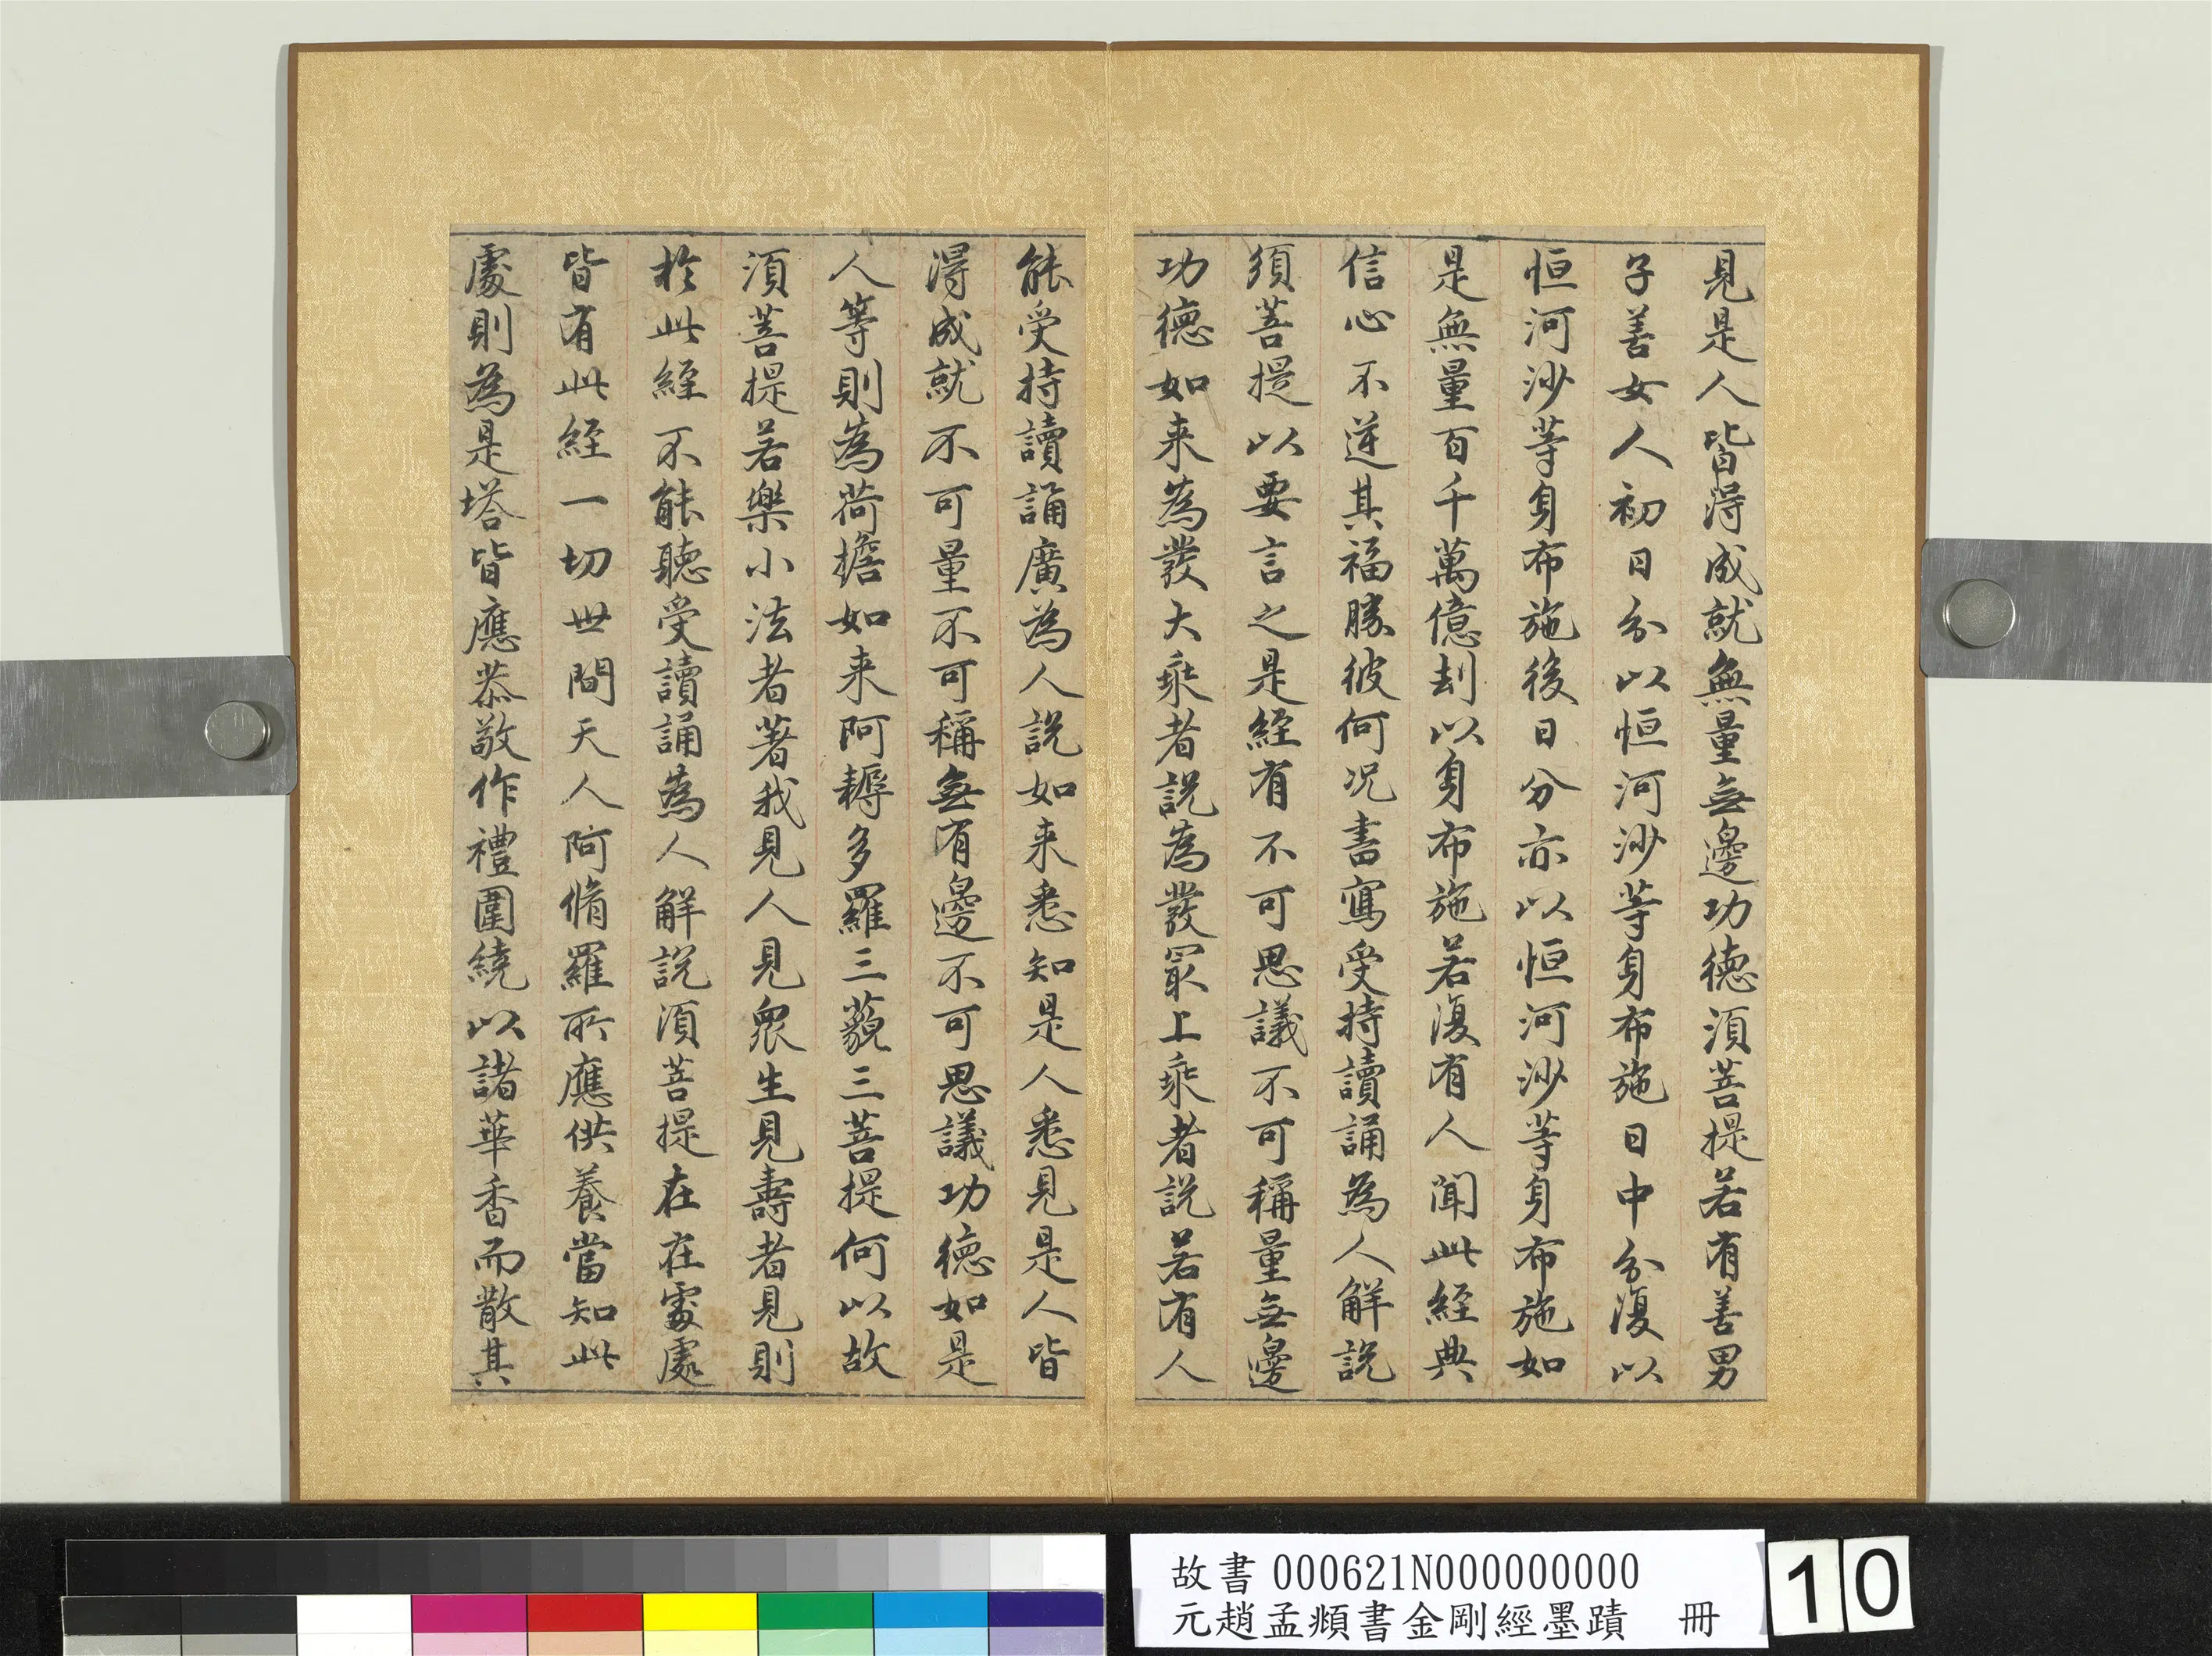 見是人皆得成就無量無邊功德須菩提若有善男
子善女人初日分以恒河沙等身布施日中分復以
恒河沙等身布施後日分亦以恒河沙等身布施如
是無量百千萬億刦以身布施若復有人聞此經典
信心不逆其福勝彼何况書寫受持讀誦為人解説
須菩提以要言之是經有不可思議不可稱量無邊
功德如来為發大乘者説為發冣上乘者説若有人
能受持讀誦廣為人説如来悉知是人悉見是人皆
得成就不可量不可稱無有邊不可思議功德如是
人等則為荷擔如来阿耨多羅三藐三菩提何以故
須菩提若樂小法者著我見人見衆生見壽者見則
於此經不能聽受讀誦為人解説須菩提在在處處
皆有此經一切世間天人阿脩羅所應供養當知此
處則為是塔皆應恭敬作禮圍繞以諸華香而散其
故書 000621N000000000
元趙孟頫書金剛經墨蹟 冊
10